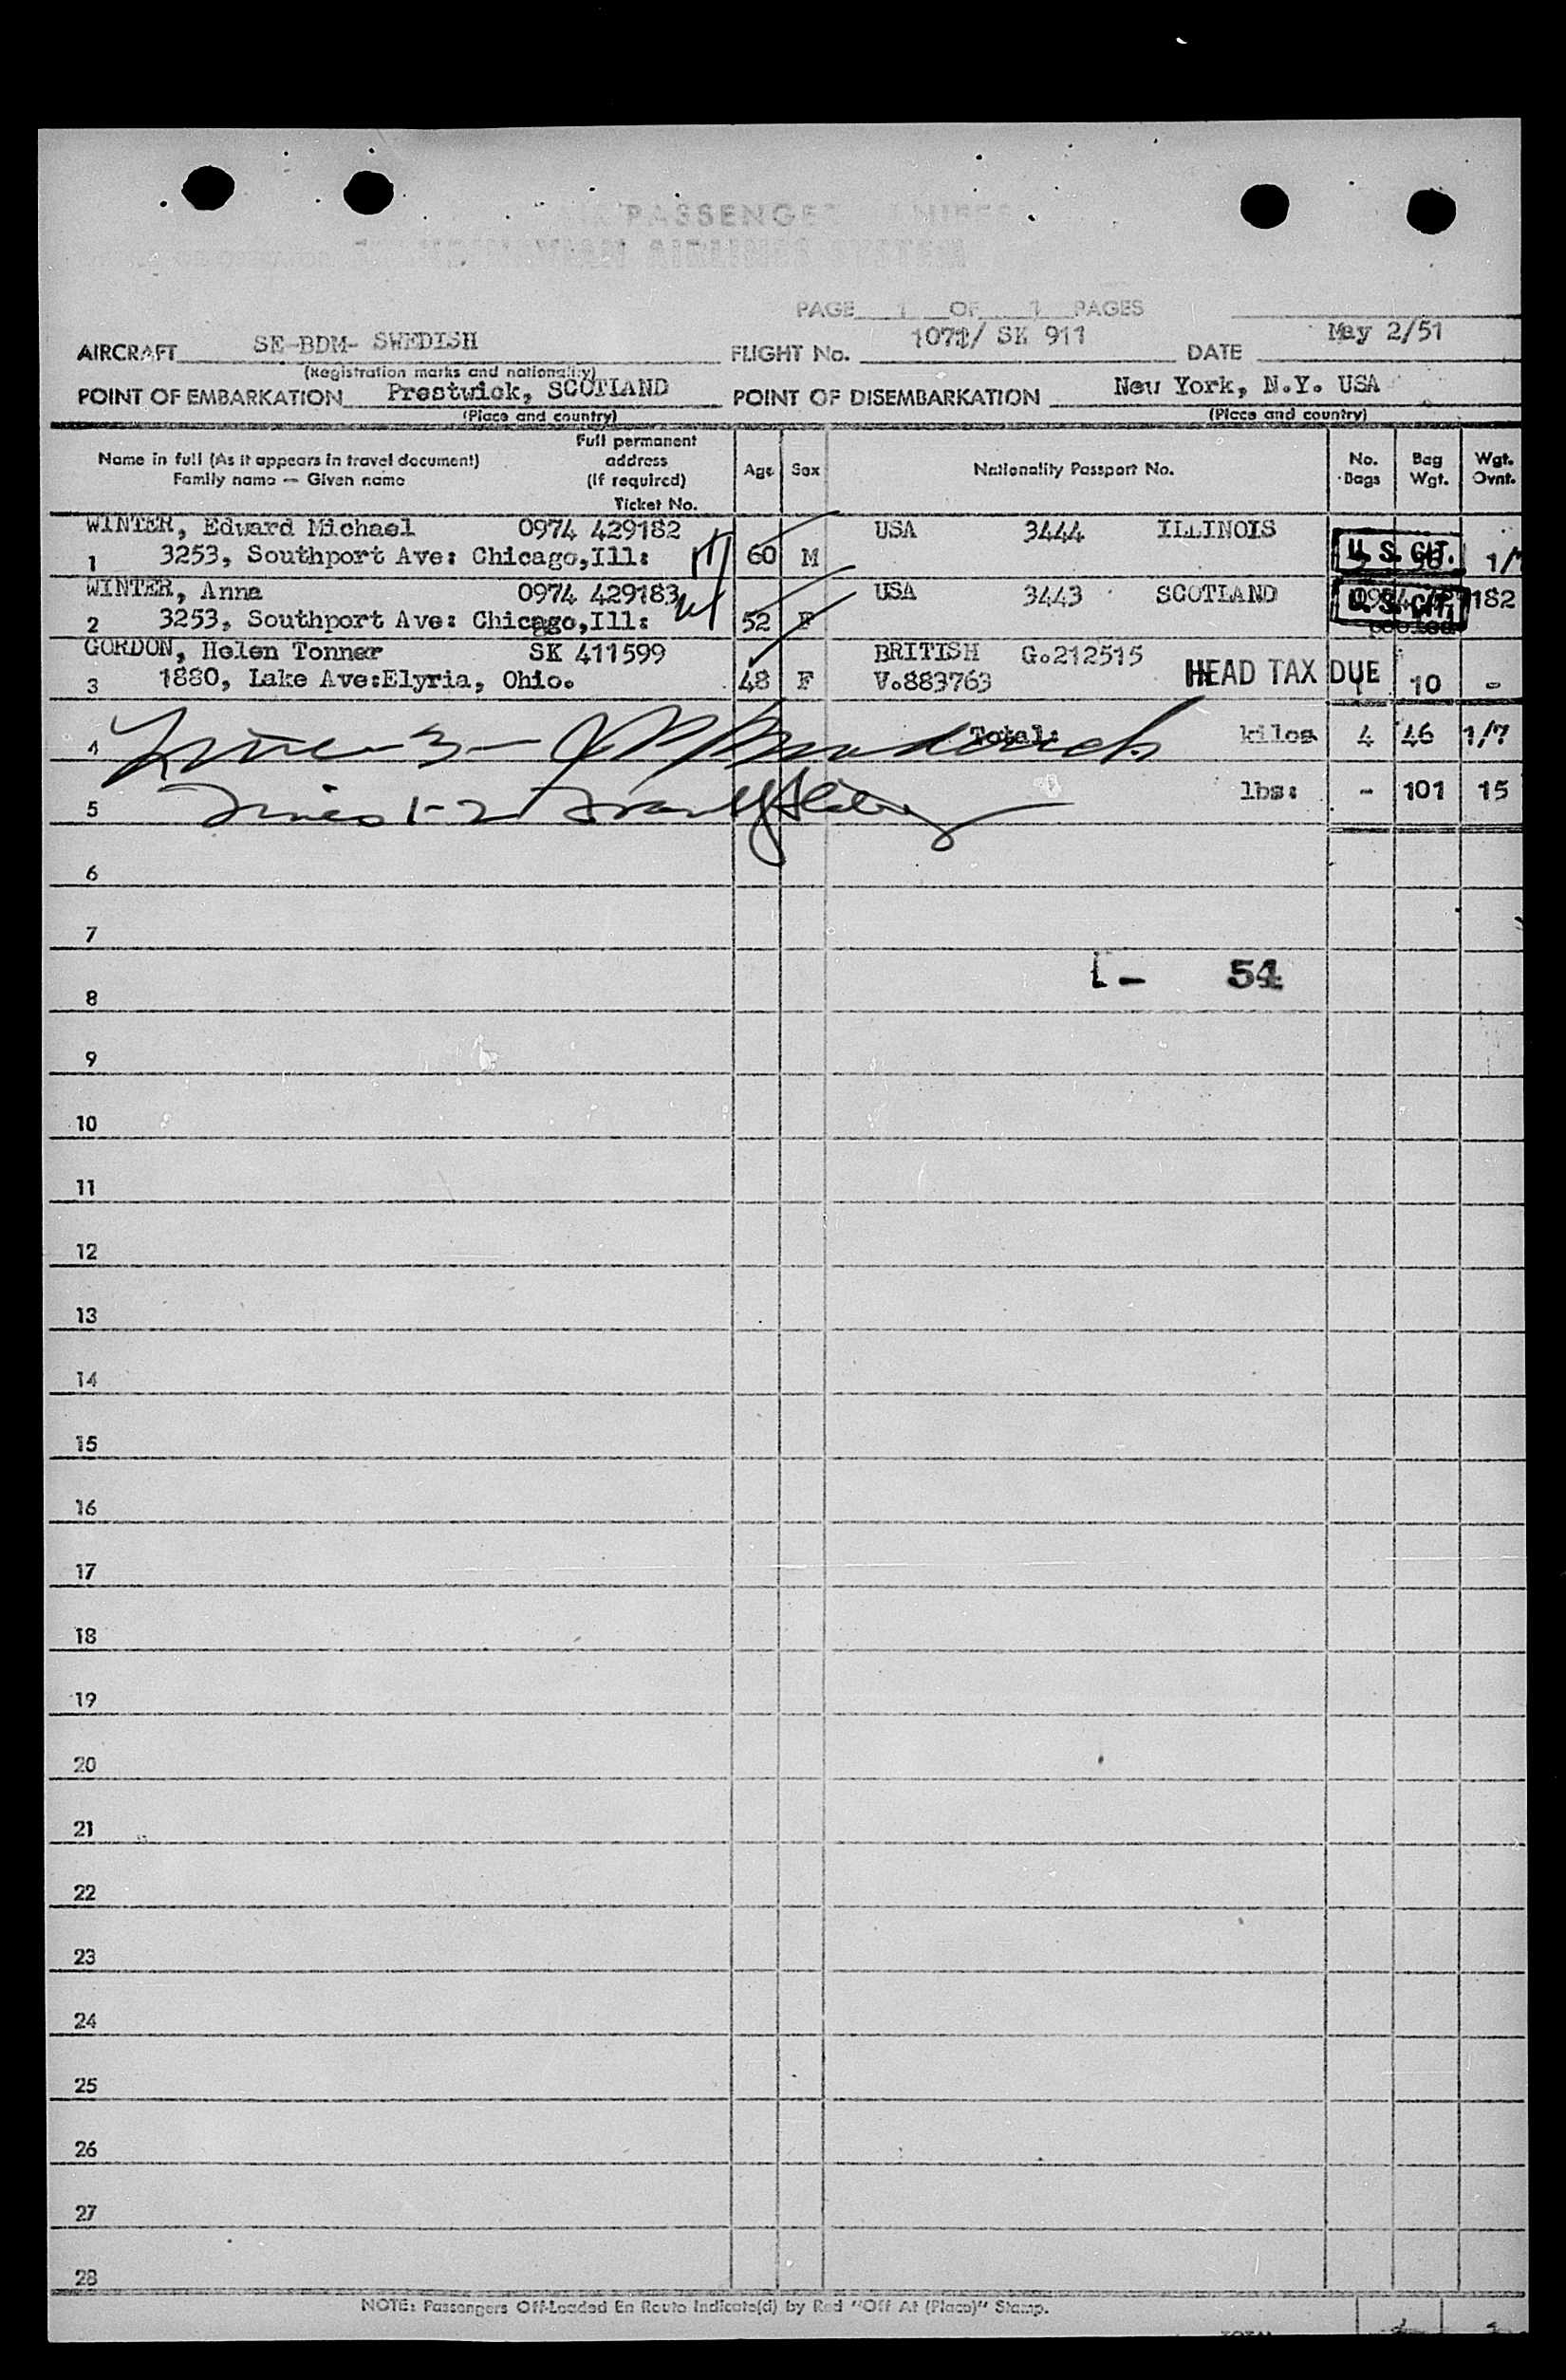 PASSENGER
AIRLINES SYSTEM
PAGE 1 OF 1 PAGES
AIRCRAFT SE-BDM- SWEDISH FLIGHT No. 1071/ SK 911 DATE May 2/51
(Registration marks and nationality)
POINT OF EMBARKATION Prestwick, SCOTLAND POINT OF DISEMBARKATION New York, N.Y. USA
(Place and country) (Place and country)
Name in full (As it appears in travel document) Family name — Given name Full permanent address (If required) Ticket No. Age Sex Nationality Passport No. No. Bags Bag Wgt. Wgt. Ovnt.
WINTER, Edward Michael 0974 429182 USA 3444 ILLINOIS
1 3253, Southport Ave: Chicago,Ill: 60 M U. S. CIT. 1/7
WINTER, Anna 0974 429183 USA 3443 SCOTLAND U. S. CIT. 182
2 3253, Southport Ave: Chicago,Ill: 52 F
GORDON, Helen Tonner SK 411599 BRITISH G.212515
3 1880, Lake Ave:Elyria, Ohio. 48 F V.883763 HEAD TAX DUE 1 10 -
4 Line 3 - Total: kilos 4 46 1/7
5 Lines 1-2 lbs: - 101 15
6
7
8 54
9
10
11
12
13
14
15
16
17
18
19
20
21
22
23
24
25
26
27
28
NOTE: Passengers Off-Loaded En Route Indicate(d) by Red "Off At (Place)" Stamp.
TOTAL